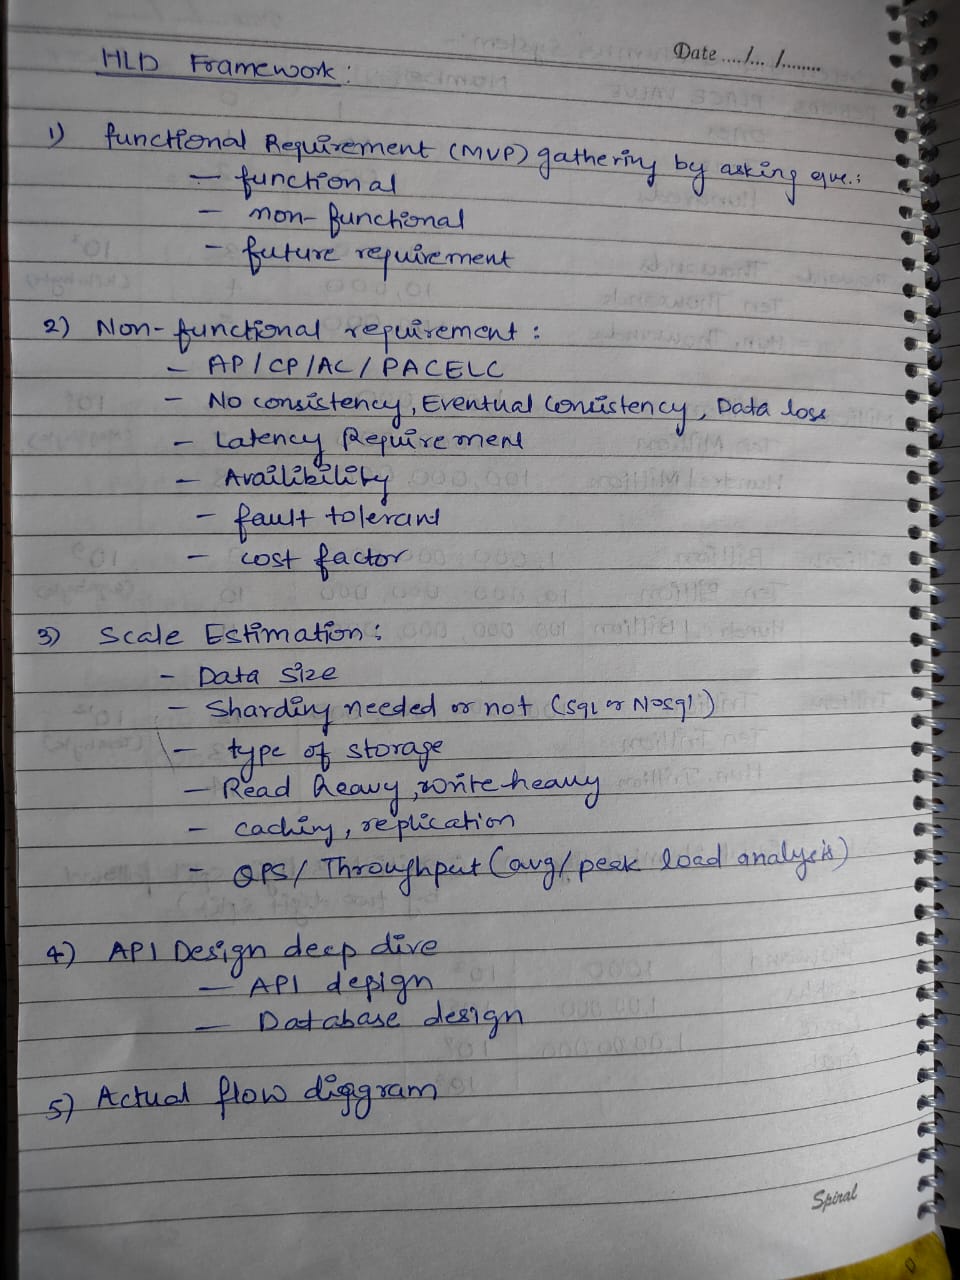 Date ..../.... /........
HLD Framework :
1) functional Requirement (MVP) gathering by asking que.:
— functional
— non-functional
— future requirement
2) Non-functional requirement :
— AP / CP / AC / PACELC
— No consistency, Eventual Consistency, Data loss
— Latency Requirement
— Availibility
— fault tolerant
— cost factor
3) Scale Estimation :
— Data size
— Sharding needed or not (sql or Nosql)
— type of storage
— Read heavy, write heavy
— caching, replication
— QPS / Throughput (avg / peak load analysis)
4) API Design deep dive
— API design
— Database design
5) Actual flow diagram
Spiral